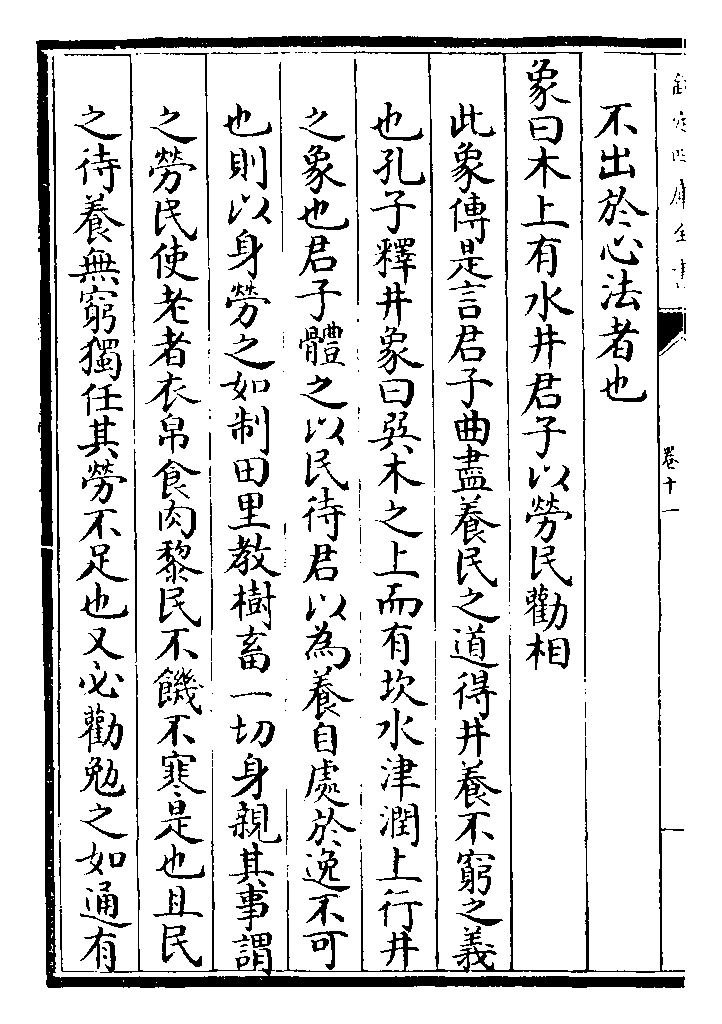 欽定四庫全書
卷十一
不出於心法者也
象曰木上有水井君子以勞民勸相
此象傳是言君子曲盡養民之道得井養不窮之義
也孔子釋井象曰巽木之上而有坎水津潤上行井
之象也君子體之以民待君以為養自處於逸不可
也則以身勞之如制田里教樹畜一切身親其事謂
之勞民使老者衣帛食肉黎民不饑不寒是也且民
之待養無窮獨任其勞不足也又必勸勉之如通有